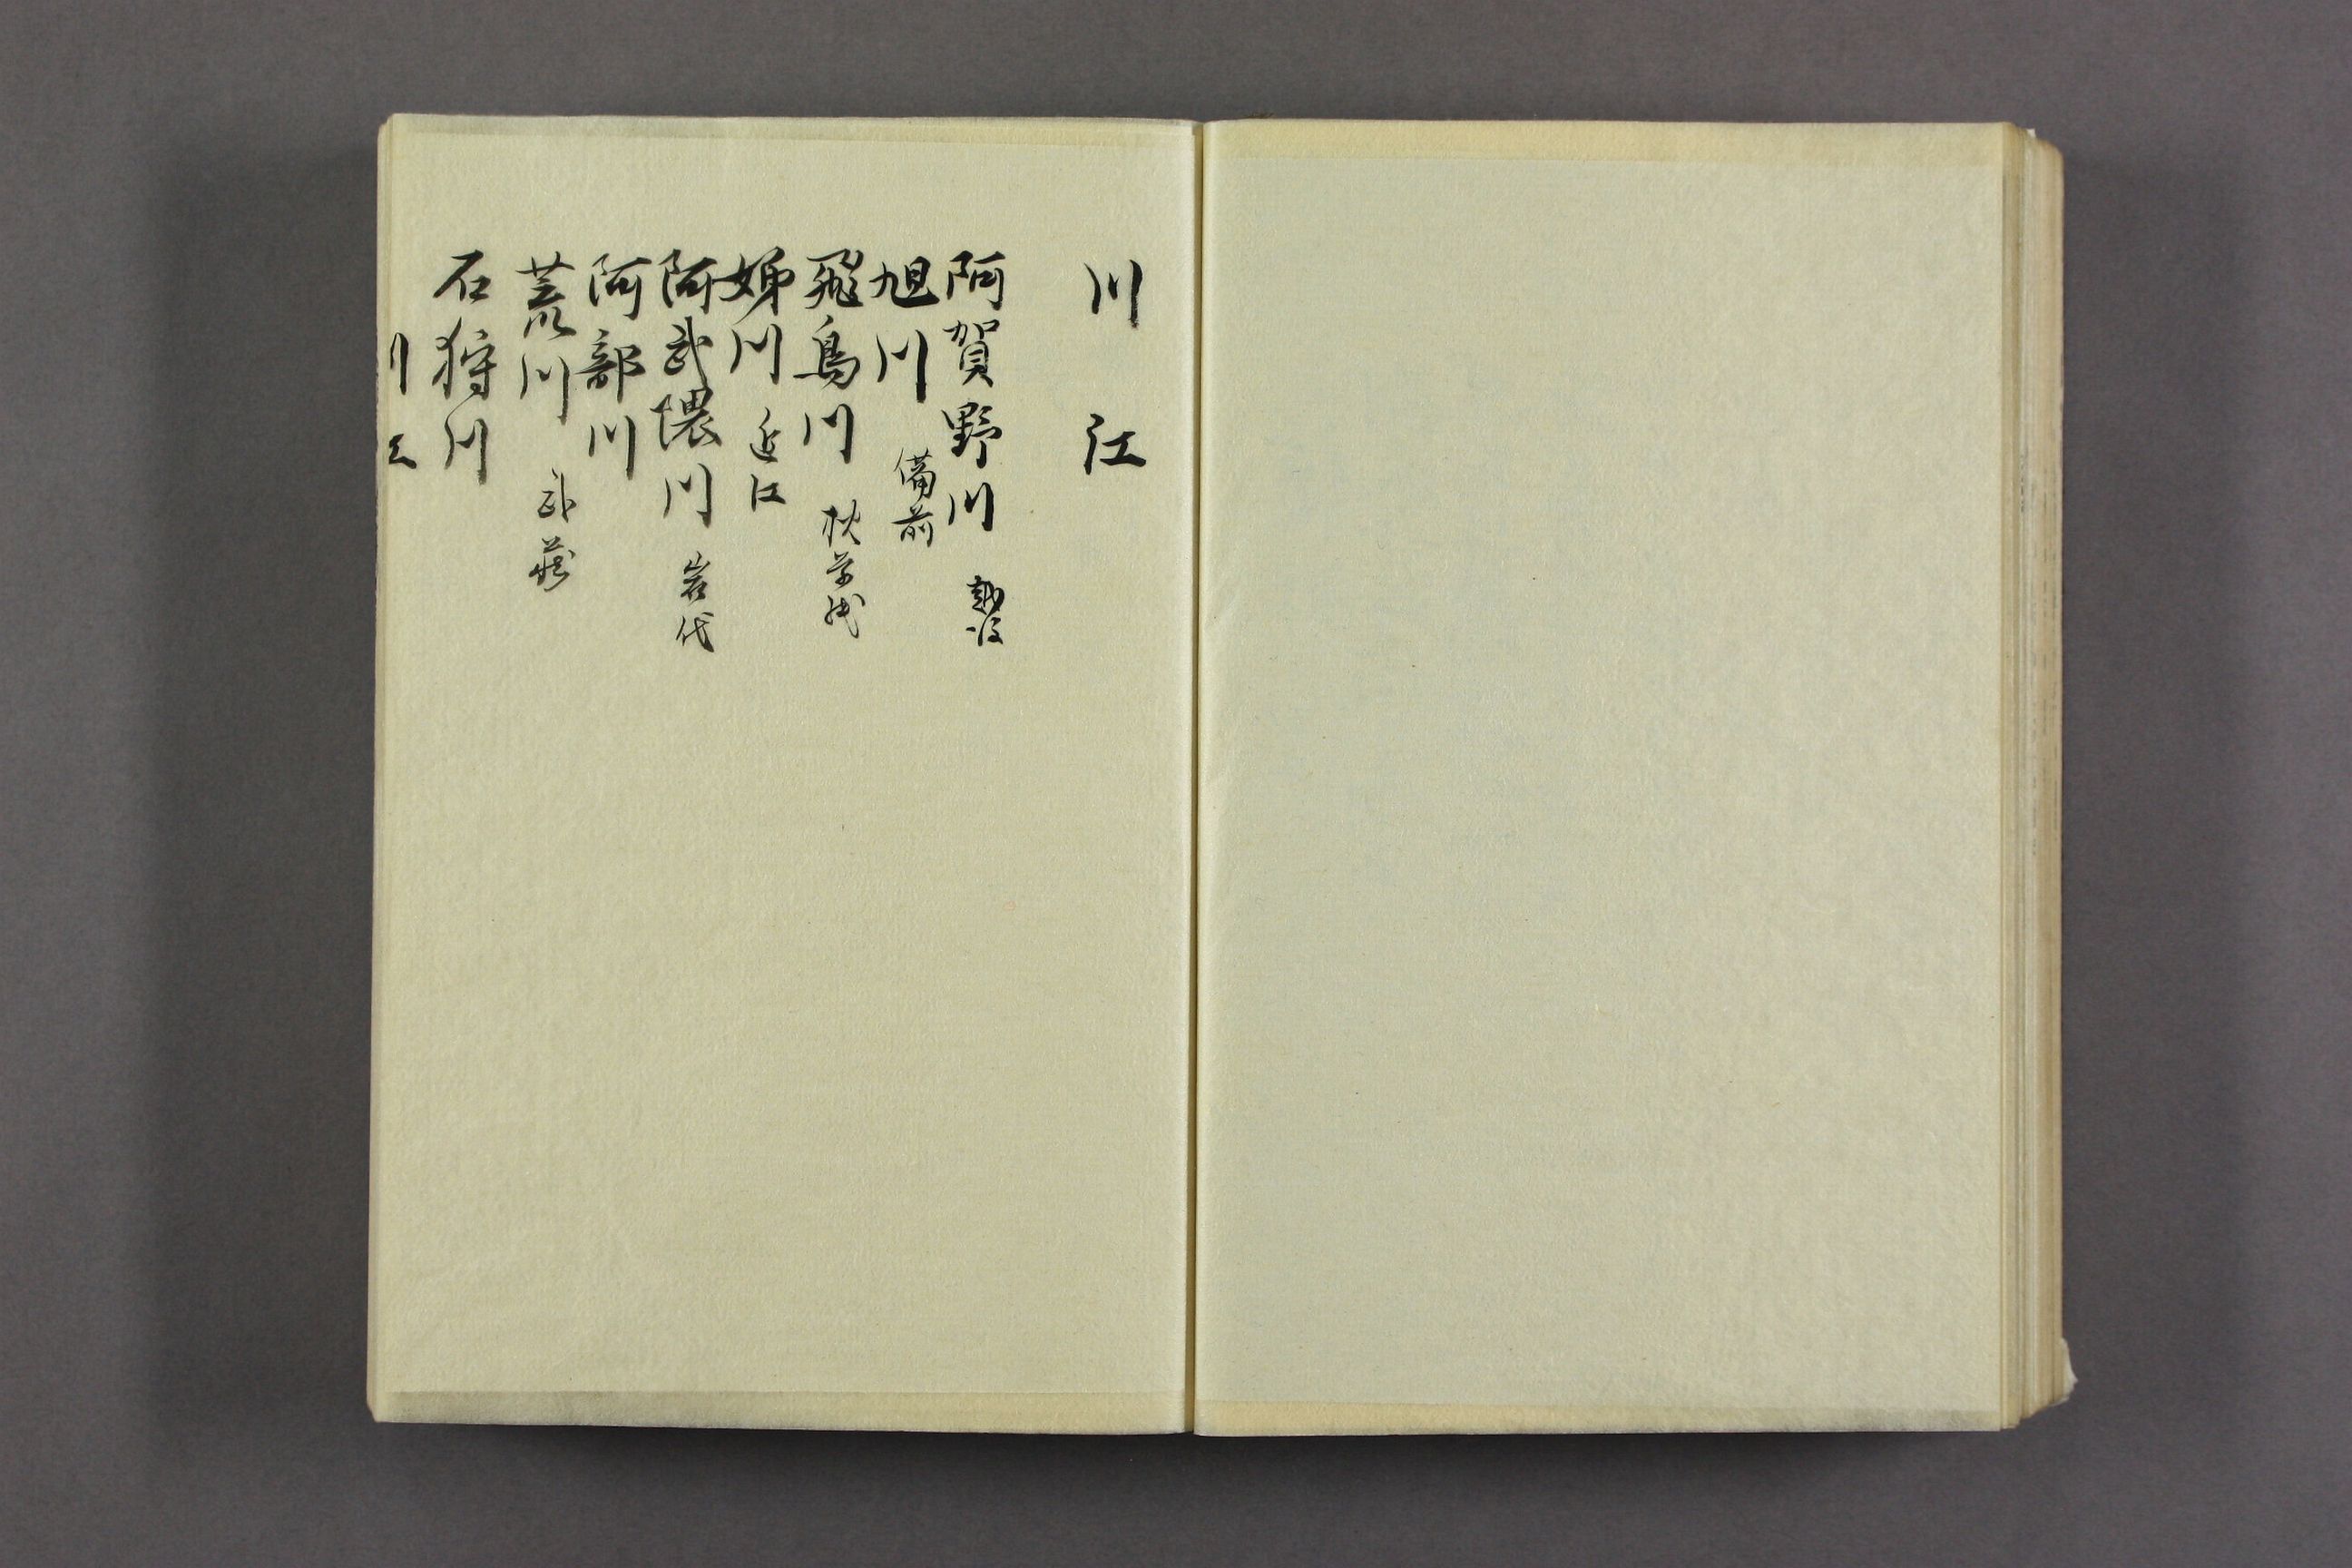 川江
阿賀野川 越後
旭川 備前
飛鳥川
姊川 近江
阿武隈川 岩代
阿部川
荒川 武蔵
石狩川
川江